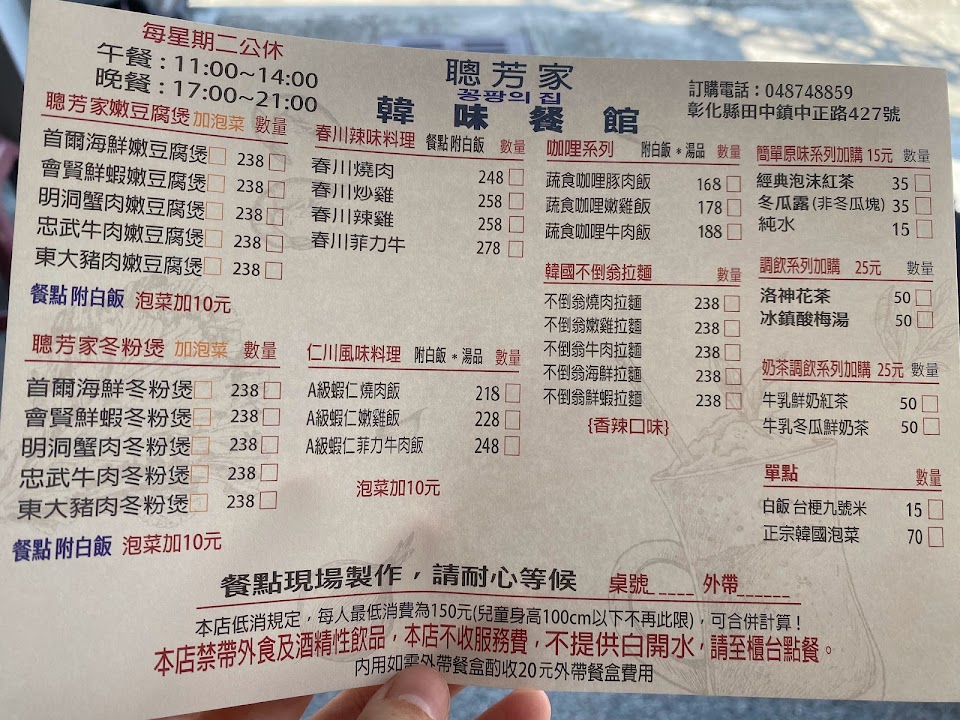 每星期二公休
午餐：11:00~14:00
晚餐：17:00~21:00
聰芳家
꽁팡의 집
韓味餐館
訂購電話：048748859
彰化縣田中鎮中正路427號
聰芳家嫩豆腐煲 加泡菜 數量
首爾海鮮嫩豆腐煲 238
會賢鮮蝦嫩豆腐煲 238
明洞蟹肉嫩豆腐煲 238
忠武牛肉嫩豆腐煲 238
東大豬肉嫩豆腐煲 238
餐點 附白飯 泡菜加10元
聰芳家冬粉煲 加泡菜 數量
首爾海鮮冬粉煲 238
會賢鮮蝦冬粉煲 238
明洞蟹肉冬粉煲 238
忠武牛肉冬粉煲 238
東大豬肉冬粉煲 238
餐點 附白飯 泡菜加10元
春川辣味料理 餐點 附白飯 數量
春川燒肉 248
春川炒雞 258
春川辣雞 258
春川菲力牛 278
仁川風味料理 附白飯 * 湯品 數量
A級蝦仁燒肉飯 218
A級蝦仁嫩雞飯 228
A級蝦仁菲力牛肉飯 248
泡菜加10元
咖哩系列 附白飯 * 湯品 數量
蔬食咖哩豚肉飯 168
蔬食咖哩嫩雞飯 178
蔬食咖哩牛肉飯 188
韓國不倒翁拉麵 數量
不倒翁燒肉拉麵 238
不倒翁嫩雞拉麵 238
不倒翁牛肉拉麵 238
不倒翁海鮮拉麵 238
不倒翁鮮蝦拉麵 238
{香辣口味}
簡單原味系列加購 15元 數量
經典泡沫紅茶 35
冬瓜露(非冬瓜塊) 35
純水 15
調飲系列加購 25元 數量
洛神花茶 50
冰鎮酸梅湯 50
奶茶調飲系列加購 25元 數量
牛乳鮮奶紅茶 50
牛乳冬瓜鮮奶茶 50
單點 數量
白飯 台梗九號米 15
正宗韓國泡菜 70
餐點現場製作，請耐心等候 桌號_____ 外帶______
本店低消規定，每人最低消費為150元(兒童身高100cm以下不再此限)，可合併計算！
本店禁帶外食及酒精性飲品，本店不收服務費，不提供白開水，請至櫃台點餐。
內用如需外帶餐盒酌收20元外帶餐盒費用